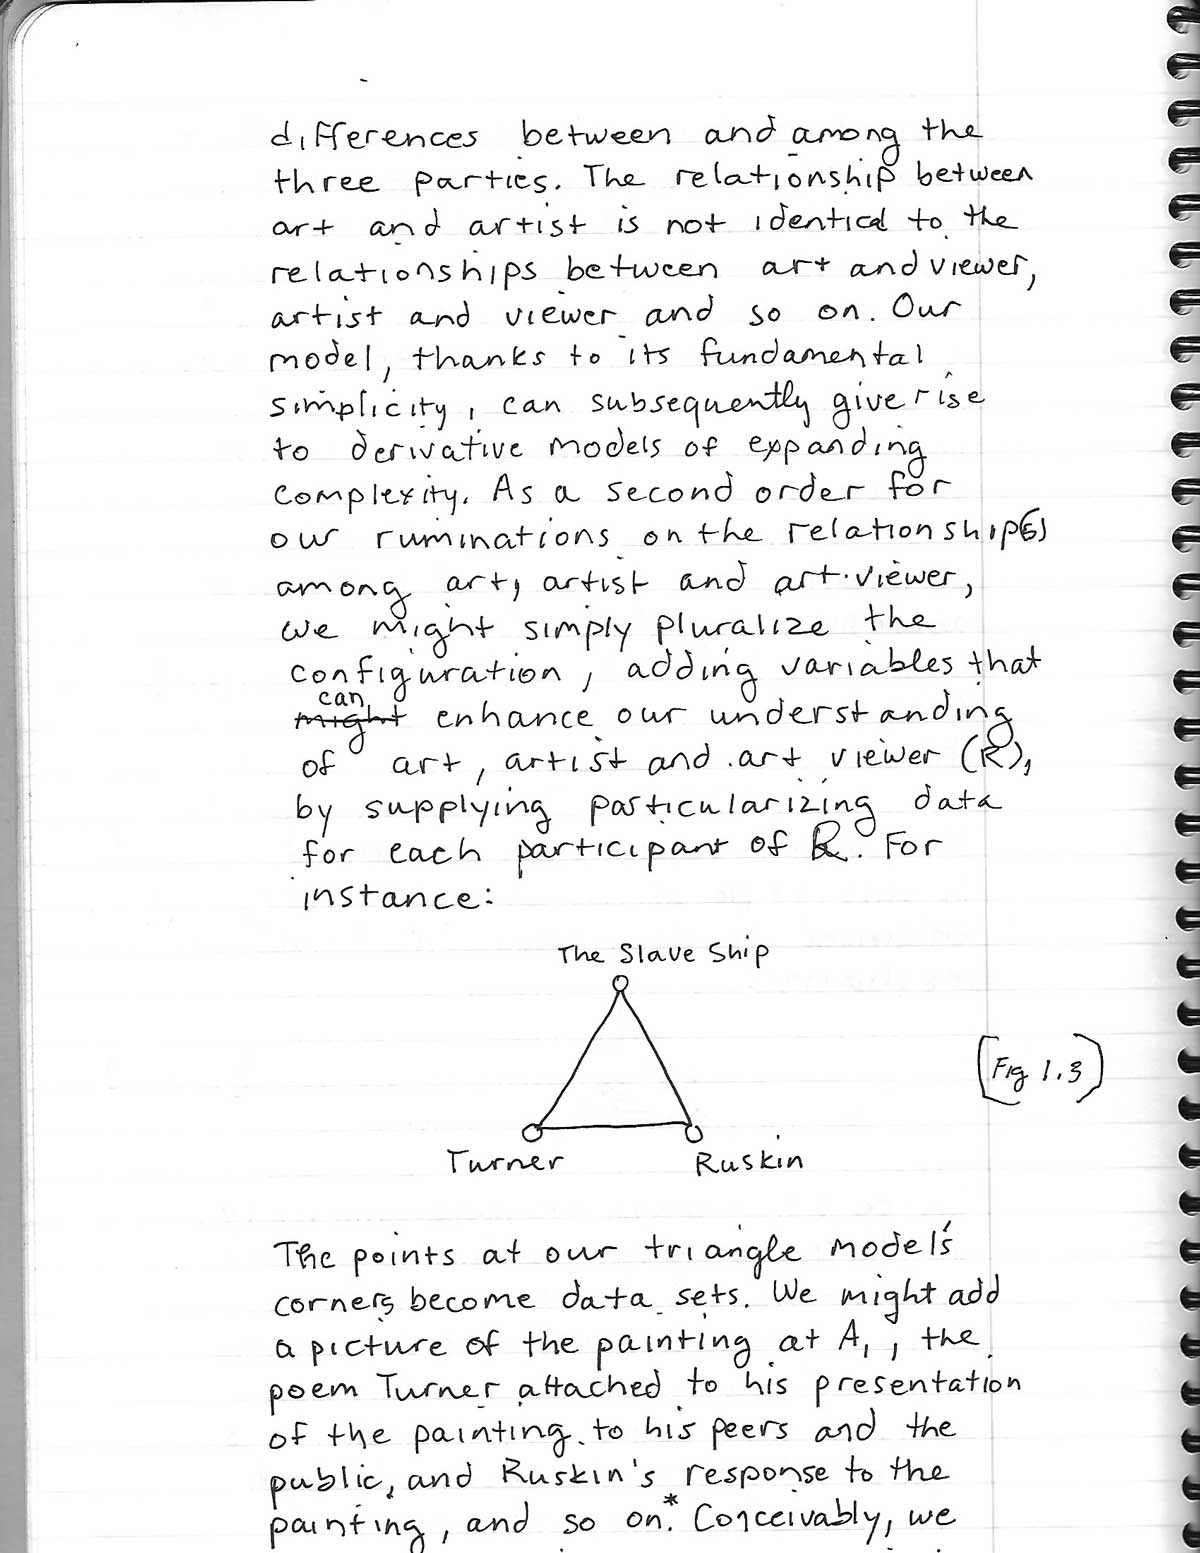 differences between and among the
three parties. The relationship between
art and artist is not identical to the
relationships between art and viewer,
artist and viewer and so on. Our
model, thanks to its fundamental
simplicity, can subsequently give rise
to derivative models of expanding
complexity. As a second order for
our ruminations on the relationship(s)
among art, artist and art-viewer,
we might simply pluralize the
configuration, adding variables that
can
might enhance our understanding
of art, artist and art viewer (R),
by supplying particularizing data
for each participant of R. For
instance:
The Slave Ship
(Fig 1.3)
Turner Ruskin
The points at our triangle model's
corners become data sets. We might add
a picture of the painting at A₁, the
poem Turner attached to his presentation
of the painting to his peers and the
public, and Ruskin's response to the
painting, and so on.* Conceivably, we